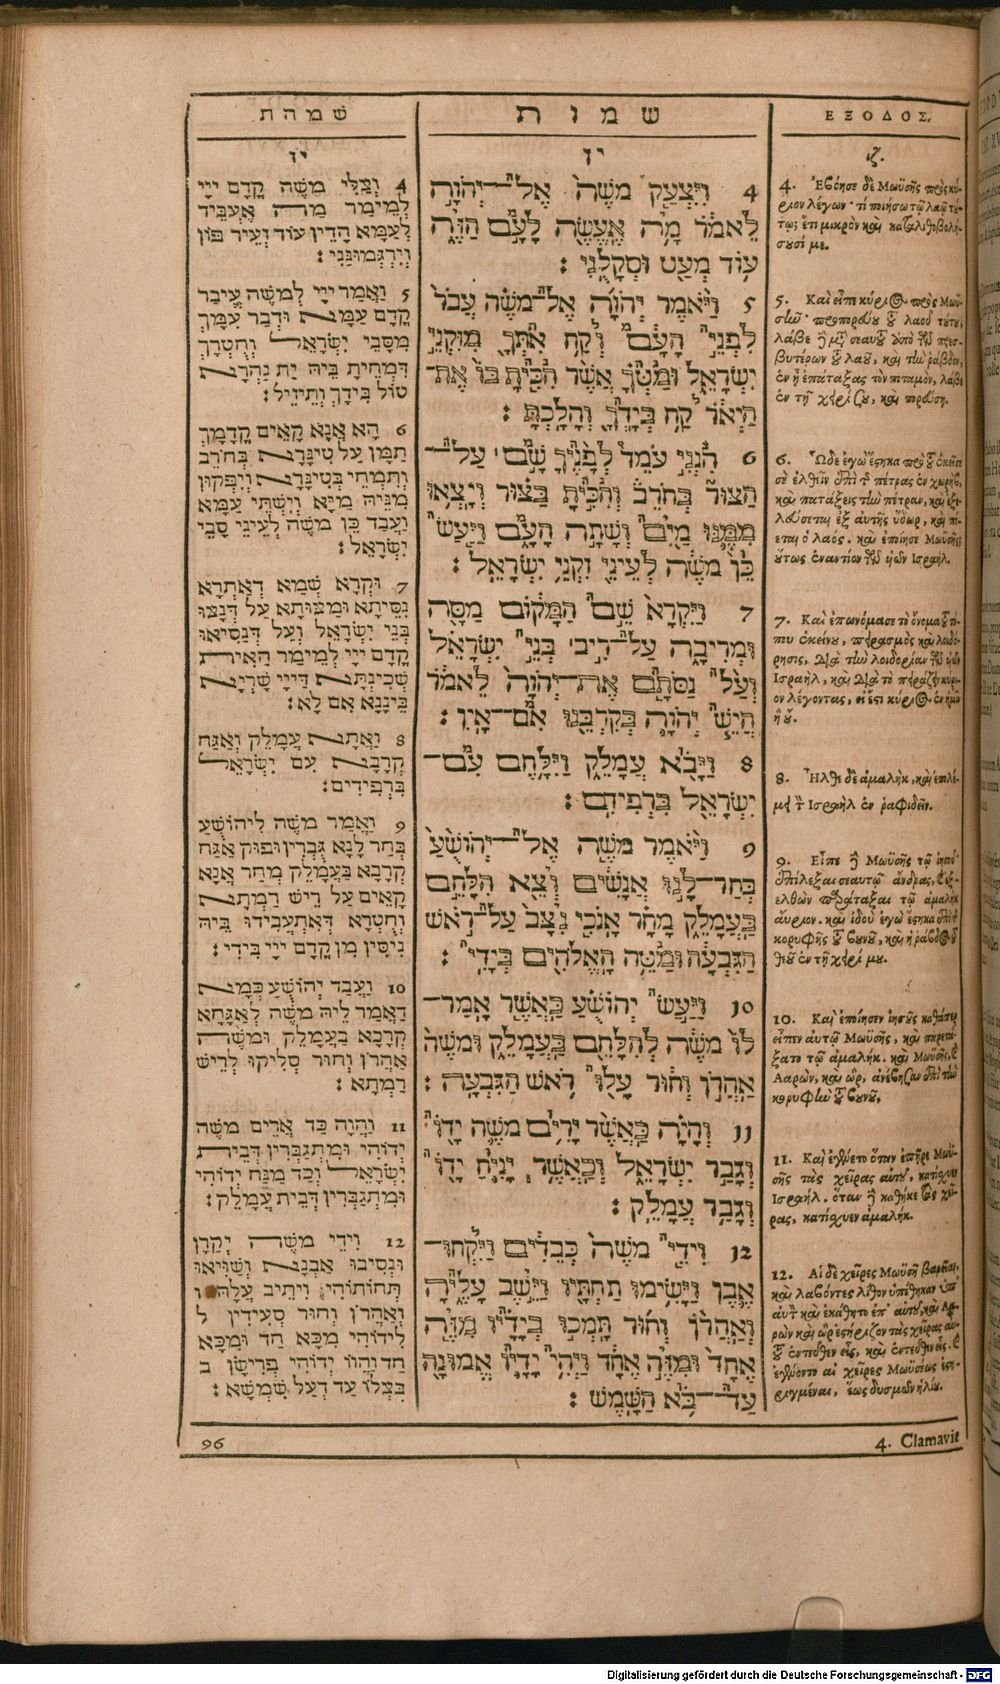 שמהת
יז
4 וְצַלִּי מֹשֶׁה קֳדָם יְיָי
לְמֵימַר מַה אֶעְבֵּיד
לְעַמָּא הָדֵין עוֹד זְעֵיר פּוֹן
וְיִרְגְּמוּנַּנִי׃
5 וַאֲמַר יְיָי לְמֹשֶׁה עֲיבַר
קֳדָם עַמָּא וּדְבַר עִמָּךְ
מִסָּבֵי יִשְׂרָאֵל וְחֻטְרָךְ
דִּמְחֵיתָ בֵיהּ יַת נַהֲרָא
סוֹל בִּידָךְ וְתֵיזֵיל׃
6 הָא אֲנָא קָאֵים קֳדָמָךְ
תַּמָּן עַל טִינָּרָא בְּחֹרֵב
וְתִמְחֵי בְּטִינָּרָא וְיִפְּקוּן
מִנֵּיהּ מַיָּא וְיִשְׁתֵּי עַמָּא
וַעֲבַד כֵּן מֹשֶׁה לְעֵינֵי סָבֵי
יִשְׂרָאֵל׃
7 וּקְרָא שְׁמָא דְאַתְרָא
נִסֵּיתָא וּמַצּוּתָא עַל דִּנְצוֹ
בְּנֵי יִשְׂרָאֵל וְעַל דְּנַסִּיאוּ
קֳדָם יְיָי לְמֵימַר הַאִית
שְׁכִינְתָּא דַיְיָי שָׁרְיָא
בֵּינָנָא אִם לָא׃
8 וַאֲתָא עֲמָלֵק וְאַגַּח
קְרָבָא עִם יִשְׂרָאֵל
בִּרְפִידִים׃
9 וַאֲמַר מֹשֶׁה לִיהוֹשֻׁעַ
בְּחַר לָנָא גֻּבְרִין וּפוּק אַגַּח
קְרָבָא בַּעֲמָלֵק מְחַר אֲנָא
קָאֵים עַל רֵישׁ רָמְתָא
וְחֻטְרָא דְּאִתְעֲבִידוּ בֵּיהּ
נִיסִּין מִן קֳדָם יְיָי בִּידִי׃
10 וַעֲבַד יְהוֹשֻׁעַ כְּמָא
דַּאֲמַר לֵיהּ מֹשֶׁה לְאַגָּחָא
קְרָבָא בַעֲמָלֵק וּמֹשֶׁה
אַהֲרֹן וְחוּר סְלִיקוּ לְרֵישׁ
רָמְתָא׃
11 וַהֲוָה כַּד אֲרֵים מֹשֶׁה
יְדוֹהִי וּמִתְגַּבְּרִין דְּבֵית
יִשְׂרָאֵל וְכַד מַנַּח יְדוֹהִי
וּמִתְגַּבְּרִין דְּבֵית עֲמָלֵק׃
12 וִידֵי מֹשֶׁה יְקַרָן
וּנְסִיבוּ אַבְנָא וְשַׁוִּיאוּ
תְּחוֹתוֹהִי וִיתֵיב עֲלַהּ
וְאַהֲרֹן וְחוּר סְעִידִין ל
לִידוֹהִי מִכָּא חַד וּמִכָּא
חַד וַהֲווֹ יְדוֹהִי פְּרִישָׂן ב
בִּצְלוֹ עַד דְּעַל שִׁמְשָׁא׃
שמות
יז
4 וַיִּצְעַק מֹשֶׁה אֶל־יְהוָֹה
לֵאמֹר מָה אֶעֱשֶׂה לָעָם הַזֶּה
עוֹד מְעַט וּסְקָלֻנִי׃
5 וַיֹּאמֶר יְהוָֹה אֶל־מֹשֶׁה עֲבֹר
לִפְנֵי הָעָם וְקַח אִתְּךָ מִזִּקְנֵי
יִשְׂרָאֵל וּמַטְּךָ אֲשֶׁר הִכִּיתָ בּוֹ אֶת־
הַיְאֹר קַח בְּיָדְךָ וְהָלָכְתָּ׃
6 הִנְנִי עֹמֵד לְפָנֶיךָ שָּׁם עַל־
הַצּוּר בְּחֹרֵב וְהִכִּיתָ בַצּוּר וְיָצְאוּ
מִמֶּנּוּ מַיִם וְשָׁתָה הָעָם וַיַּעַשׂ
כֵּן מֹשֶׁה לְעֵינֵי זִקְנֵי יִשְׂרָאֵל׃
7 וַיִּקְרָא שֵׁם הַמָּקוֹם מַסָּה
וּמְרִיבָה עַל־רִיב בְּנֵי יִשְׂרָאֵל
וְעַל נַסֹּתָם אֶת־יְהוָֹה לֵאמֹר
הֲיֵשׁ יְהוָֹה בְּקִרְבֵּנוּ אִם־אָיִן׃
8 וַיָּבֹא עֲמָלֵק וַיִּלָּחֶם עִם־
יִשְׂרָאֵל בִּרְפִידִם׃
9 וַיֹּאמֶר מֹשֶׁה אֶל־יְהוֹשֻׁעַ
בְּחַר־לָנוּ אֲנָשִׁים וְצֵא הִלָּחֵם
בַּעֲמָלֵק מָחָר אָנֹכִי נִצָּב עַל־רֹאשׁ
הַגִּבְעָה וּמַטֵּה הָאֱלֹהִים בְּיָדִי׃
10 וַיַּעַשׂ יְהוֹשֻׁעַ כַּאֲשֶׁר אָמַר־
לוֹ מֹשֶׁה לְהִלָּחֵם בַּעֲמָלֵק וּמֹשֶׁה
אַהֲרֹן וְחוּר עָלוּ רֹאשׁ הַגִּבְעָה׃
11 וְהָיָה כַּאֲשֶׁר יָרִים מֹשֶׁה יָדוֹ
וְגָבַר יִשְׂרָאֵל וְכַאֲשֶׁר יָנִיחַ יָדוֹ
וְגָבַר עֲמָלֵק׃
12 וִידֵי מֹשֶׁה כְּבֵדִים וַיִּקְחוּ־
אֶבֶן וַיָּשִׂימוּ תַחְתָּיו וַיֵּשֶׁב עָלֶיהָ
וְאַהֲרֹן וְחוּר תָּמְכוּ בְיָדָיו מִזֶּה
אֶחָד וּמִזֶּה אֶחָד וַיְהִי יָדָיו אֱמוּנָה
עַד־בֹּא הַשָּׁמֶשׁ׃
ΕΞΟΔΟΣ.
ιζ.
4. Ἐβόησε δὲ Μωϋσῆς πρὸς κύ-
ριον λέγων· τί ποιήσω τῷ λαῷ τύ-
τῳ; ἔτι μικρὸν καὶ καταλιθοβολή-
σουσί με.
5. Καὶ εἶπε κύριος πρὸς Μωϋ-
σῆν· προπορεύου τοῦ λαοῦ τούτου,
λάβε δὲ μετὰ σεαυτοῦ ἀπὸ τῶν πρεσ-
βυτέρων τοῦ λαοῦ, καὶ τὴν ῥάβδον,
ἐν ᾗ ἐπάταξας τὸν ποταμὸν, λάβε
ἐν τῇ χειρί σου, καὶ πορεύσῃ.
6. Ὧδε ἐγὼ ἕστηκα πρὸ τοῦ ἐκεῖσε
σὲ ἐλθεῖν ἐπὶ τῆς πέτρας ἐν χωρὴβ,
καὶ πατάξεις τὴν πέτραν, καὶ ἐξε-
λεύσεται ἐξ αὐτῆς ὕδωρ, καὶ πί-
εται ὁ λαός. καὶ ἐποίησε Μωϋσῆς
οὕτως ἐναντίον τῶν υἱῶν Ισραήλ.
7. Καὶ ἐπωνόμασε τὸ ὄνομα τοῦ τό-
που ἐκείνου, πειρασμὸς καὶ λοιδό-
ρησις, διὰ τὴν λοιδορίαν τῶν υἱῶν
Ισραὴλ, καὶ διὰ τὸ πειράζειν κύρι-
ον λέγοντας, εἰ ἔστι κύριος ἐν ἡμῖν
ἢ οὔ.
8. Ἦλθε δὲ ἀμαλὴκ, καὶ ἐπολέ-
μει τὸν Ισραὴλ ἐν ῥαφιδείν.
9. Εἶπε δὲ Μωϋσῆς τῷ ἰησοῦ·
ἐπίλεξαι σεαυτῷ ἄνδρας, καὶ ἐξ-
ελθὼν παράταξαι τῷ ἀμαλὴκ
αὔριον. καὶ ἰδοὺ ἐγὼ ἕστηκα ἐπὶ τῆς
κορυφῆς τοῦ βουνοῦ, καὶ ἡ ῥάβδος τοῦ
θεοῦ ἐν τῇ χειρί μου.
10. Καὶ ἐποίησεν ἰησοῦς καθάπερ
εἶπεν αὐτῷ Μωϋσῆς, καὶ παρετά-
ξατο τῷ ἀμαλήκ. καὶ Μωϋσῆς, καὶ
Ααρὼν, καὶ ὢρ, ἀνέβησαν ἐπὶ τὴν
κορυφὴν τοῦ βουνοῦ.
11. Καὶ ἐγένετο ὅταν ἐπῆρε Μωϋ-
σῆς τὰς χεῖρας αὐτοῦ, κατίσχυεν
Ισραήλ. ὅταν δὲ καθῆκε τὰς χεῖ-
ρας, κατίσχυεν ἀμαλήκ.
12. Αἱ δὲ χεῖρες Μωϋσῆ βαρεῖαι.
καὶ λαβόντες λίθον ὑπέθηκαν ὑπ'
αὐτὸν καὶ ἐκάθητο ἐπ' αὐτοῦ, καὶ Αα-
ρὼν καὶ ὢρ ἐστήριζον τὰς χεῖρας αὐ-
τοῦ ἐντεῦθεν εἷς, καὶ ἐντεῦθεν εἷς. καὶ
ἐγένοντο αἱ χεῖρες Μωϋσέως ἐστη-
ριγμέναι, ἕως δυσμῶν ἡλίου.
96
4. Clamavit
Digitalisierung gefördert durch die Deutsche Forschungsgemeinschaft - DFG